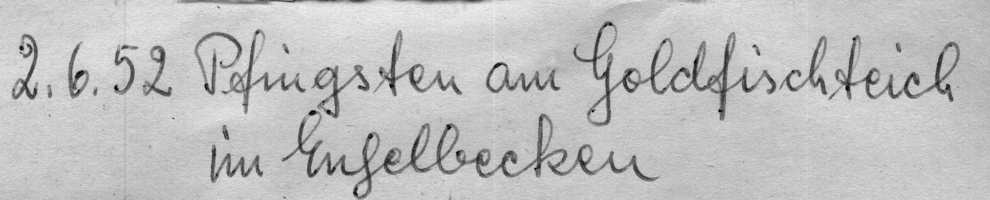 2.6.52 Pfingsten am Goldfischteich
im Engelbecken